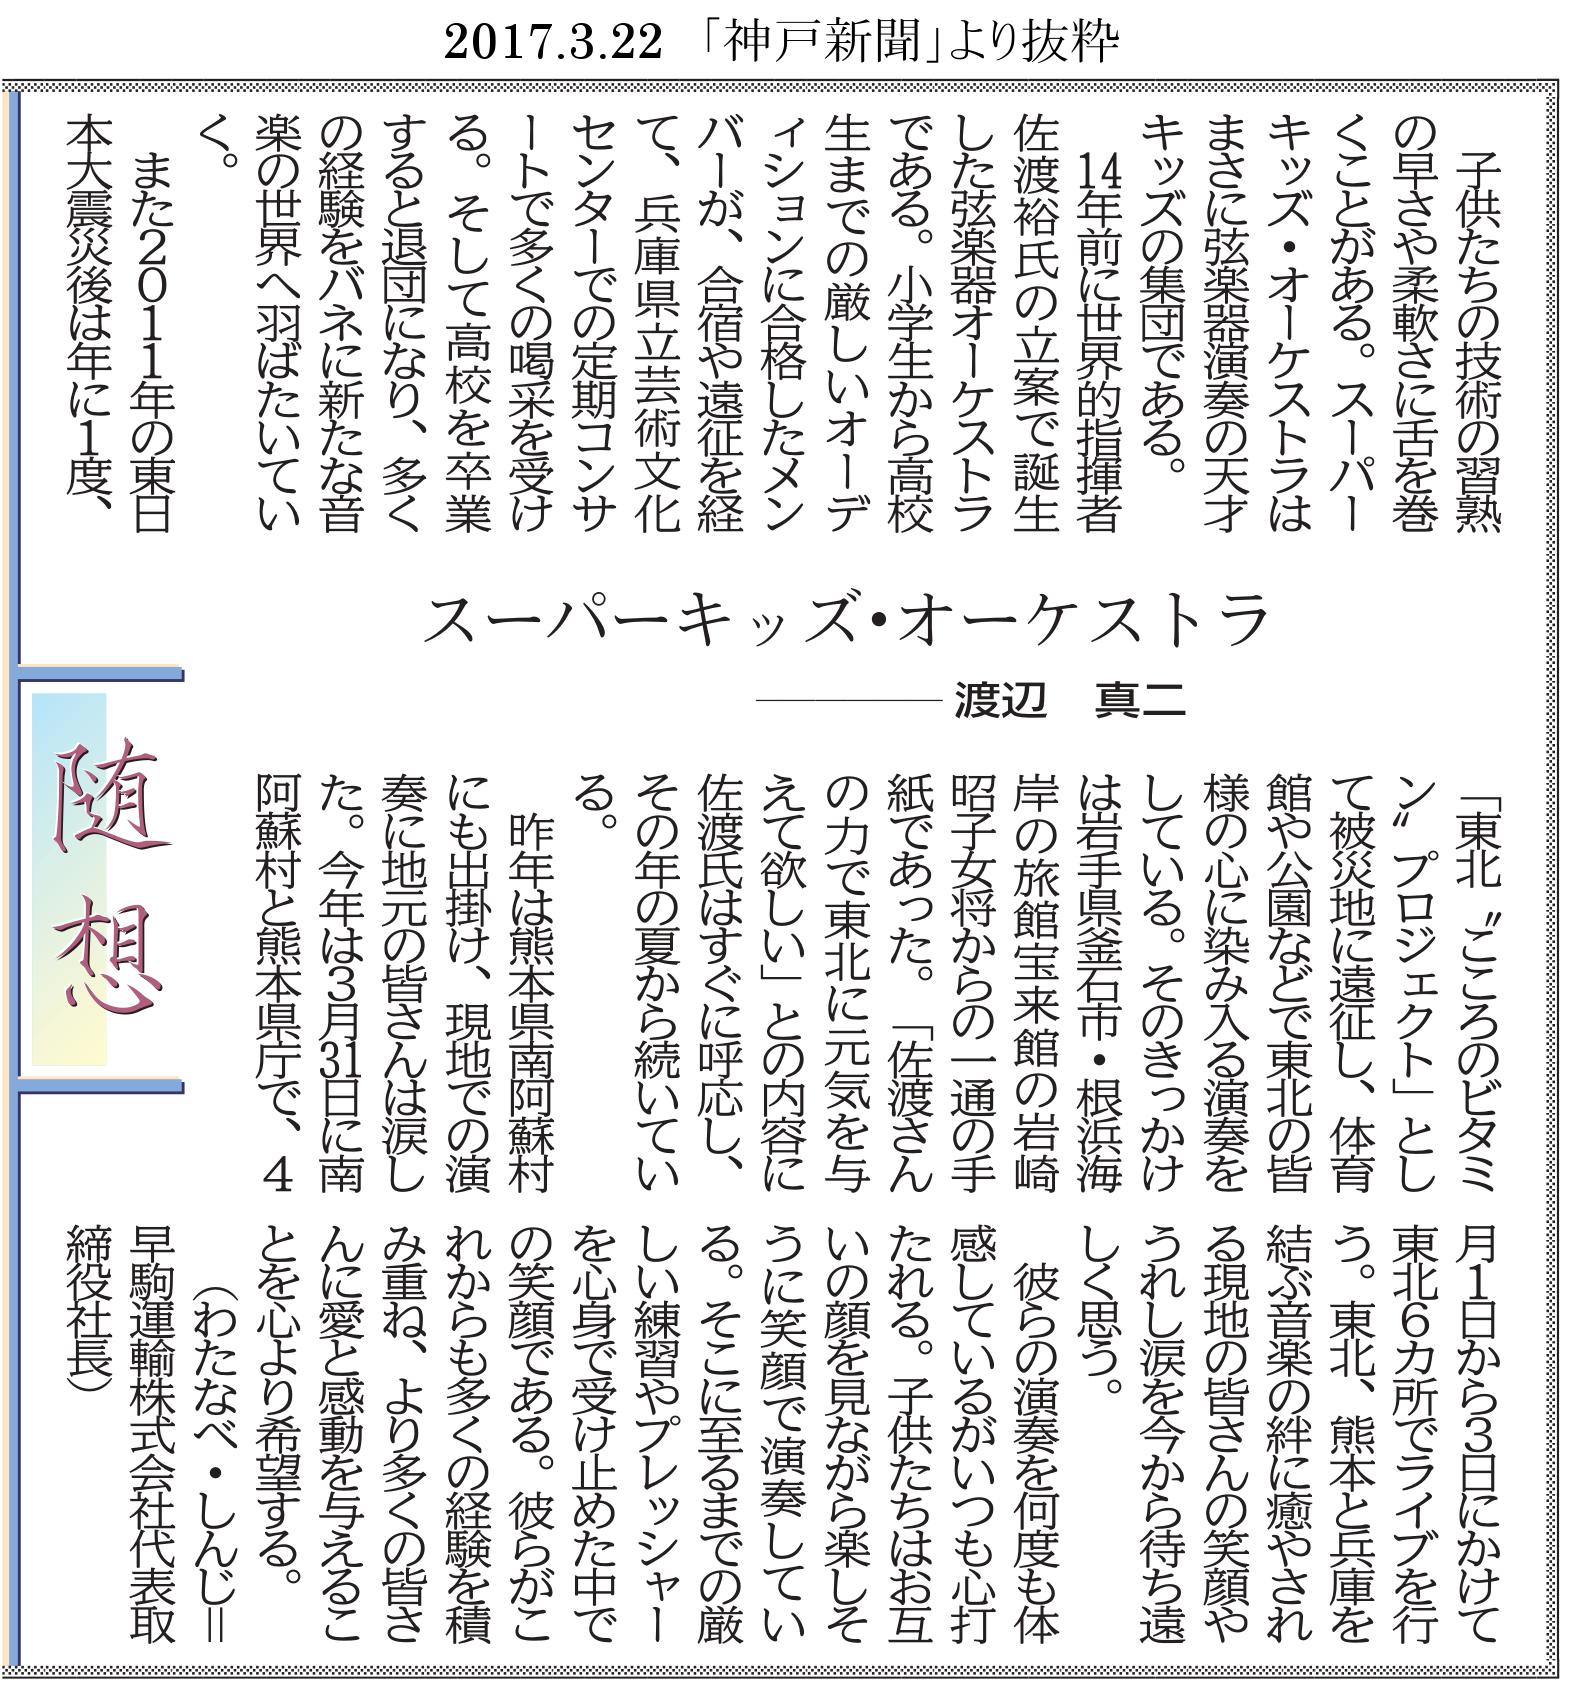 2017.3.22 「神戸新聞」より抜粋
子供たちの技術の習熟
の早さや柔軟さに舌を巻
くことがある。スーパー
キッズ・オーケストラは
まさに弦楽器演奏の天才
キッズの集団である。
14年前に世界的指揮者
佐渡裕氏の立案で誕生
した弦楽器オーケストラ
である。小学生から高校
生までの厳しいオーデ
ィションに合格したメン
バーが、合宿や遠征を経
て、兵庫県立芸術文化
センターでの定期コンサ
ートで多くの喝采を受け
る。そして高校を卒業
すると退団になり、多く
の経験をバネに新たな音
楽の世界へ羽ばたいてい
く。
また2011年の東日
本大震災後は年に1度、
スーパーキッズ・オーケストラ
渡辺 真二
随想
「東北〝こころのビタミ
ン〟プロジェクト」とし
て被災地に遠征し、体育
館や公園などで東北の皆
様の心に染み入る演奏を
している。そのきっかけ
は岩手県釜石市・根浜海
岸の旅館宝来館の岩崎
昭子女将からの一通の手
紙であった。「佐渡さん
の力で東北に元気を与
えて欲しい」との内容に
佐渡氏はすぐに呼応し、
その年の夏から続いてい
る。
昨年は熊本県南阿蘇村
にも出掛け、現地での演
奏に地元の皆さんは涙し
た。今年は3月31日に南
阿蘇村と熊本県庁で、4
月1日から3日にかけて
東北6カ所でライブを行
う。東北、熊本と兵庫を
結ぶ音楽の絆に癒やされ
る現地の皆さんの笑顔や
うれし涙を今から待ち遠
しく思う。
彼らの演奏を何度も体
感しているがいつも心打
たれる。子供たちはお互
いの顔を見ながら楽しそ
うに笑顔で演奏してい
る。そこに至るまでの厳
しい練習やプレッシャー
を心身で受け止めた中で
の笑顔である。彼らがこ
れからも多くの経験を積
み重ね、より多くの皆さ
んに愛と感動を与えるこ
とを心より希望する。
(わたなべ・しんじ＝
早駒運輸株式会社代表取
締役社長)